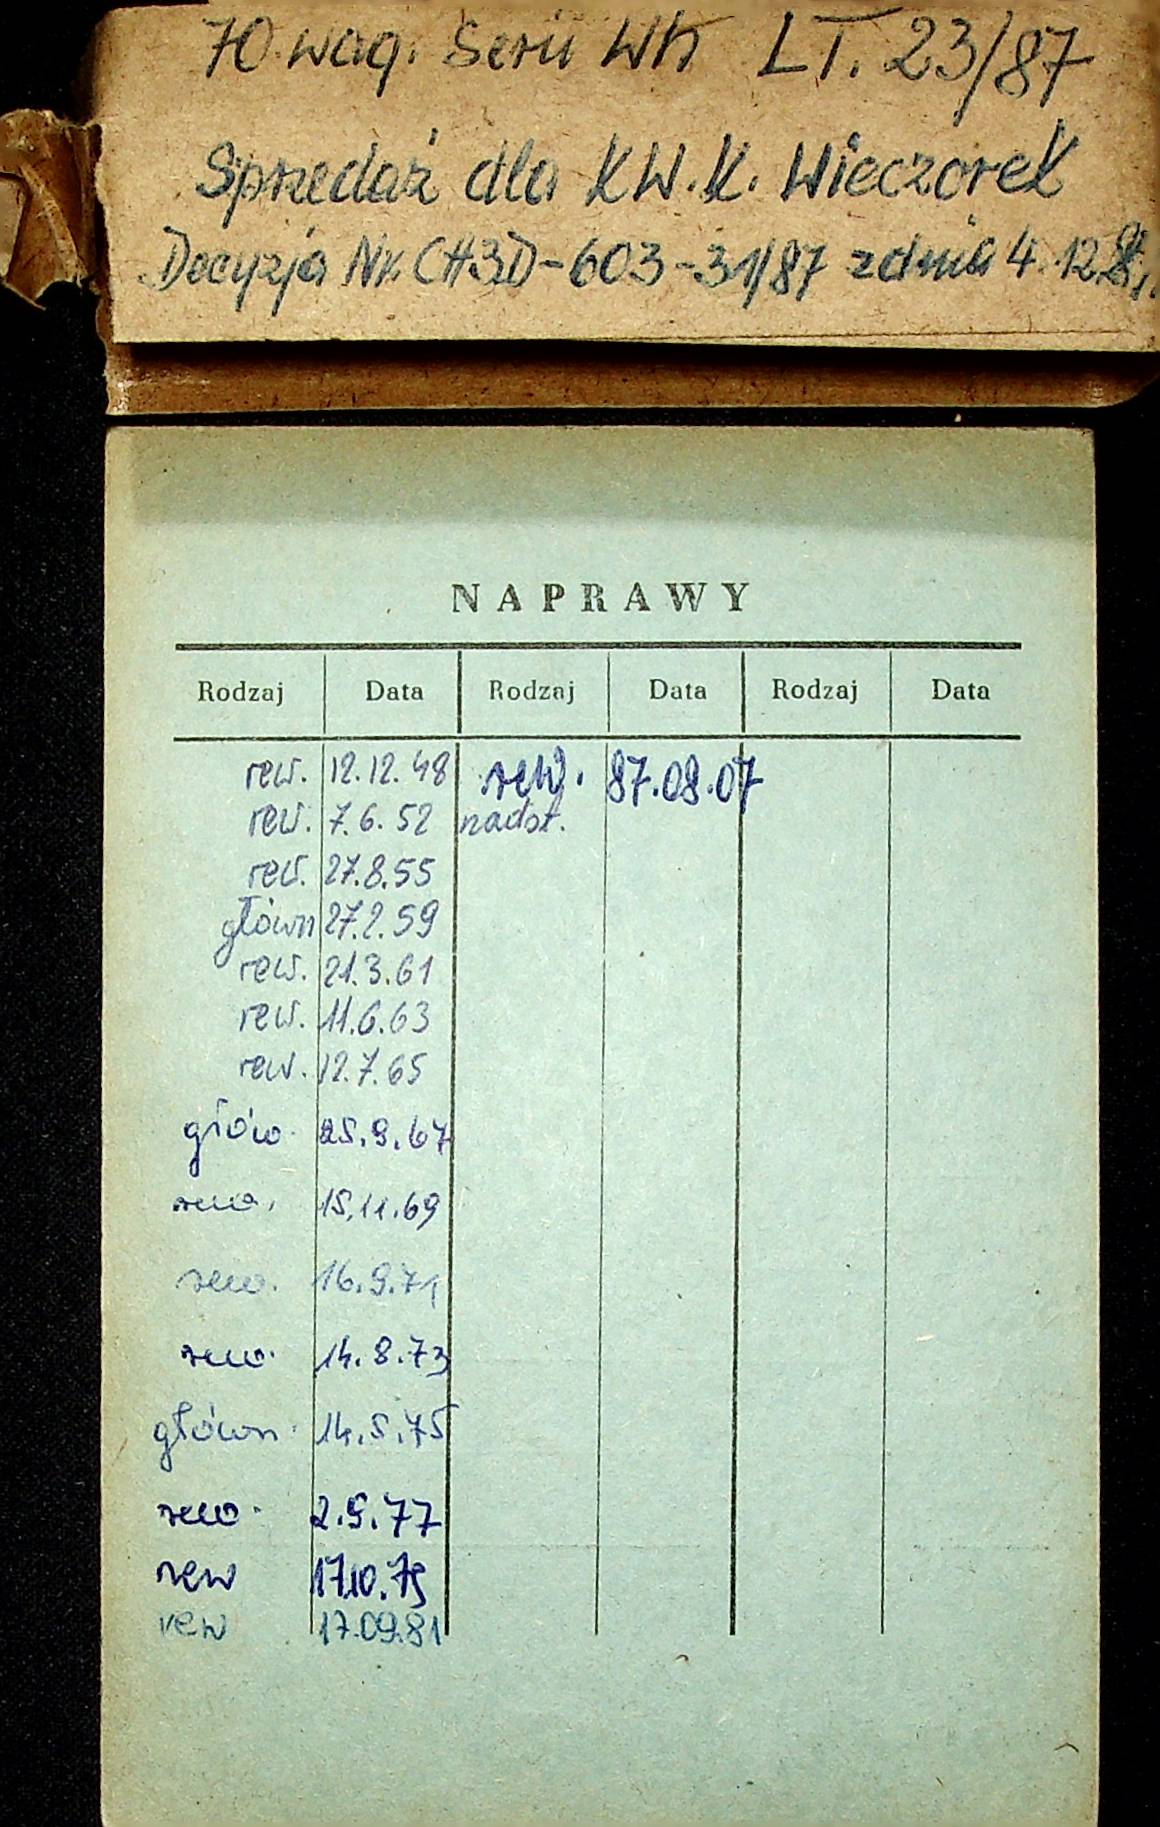 70 wag. Serii Wh LT. 23/87
Sprzedaż dla KW.K. Wieczorek
Decyzja Nr. CH3D-603-31/87 z dnia 4.12.
NAPRAWY
Rodzaj Data Rodzaj Data Rodzaj Data
rew. 12.12.48 rew. 87.08.07
rew. 7.6.52 nadst.
rew. 27.8.55
główn 27.2.59
rew. 21.3.61
rew. 11.6.63
rew. 12.7.65
głów. 25.9.67
rew. 15.11.69
rew. 16.9.71
rew. 14.8.73
główn. 14.5.75
rew. 2.9.77
rew 17.10.79
rew 17.09.81